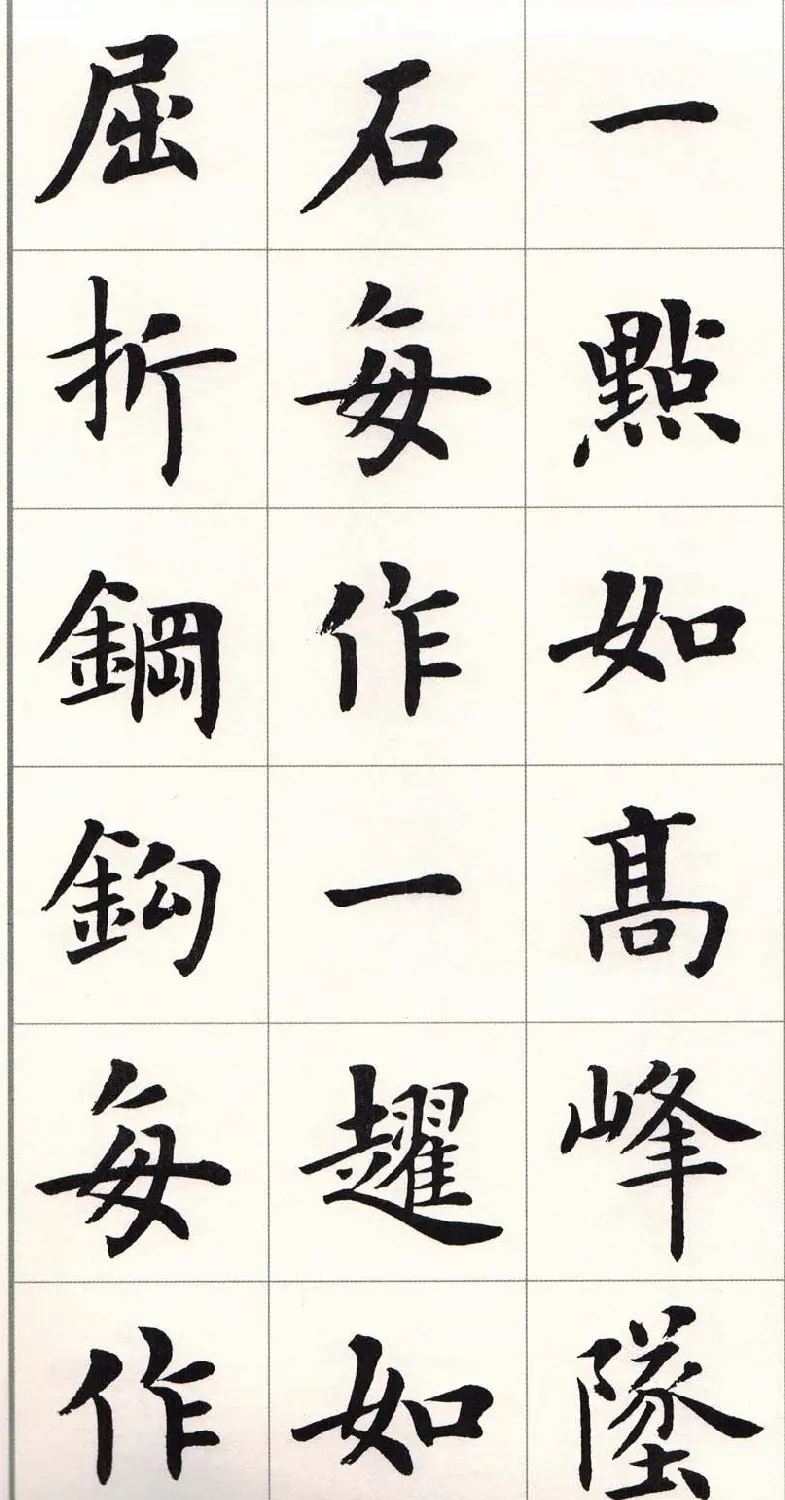 一點如高峰墜
石每作一趯如
屈折鋼鈎每作